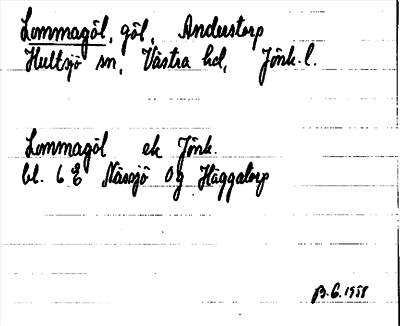 Lommagöl, göl, Anderstorp
Hultsjö sn, Västra hd, Jönk. l.
Lommagöl ek Jönk.
bl. 6 E Nässjö Og Häggatorp
B.G. 1958